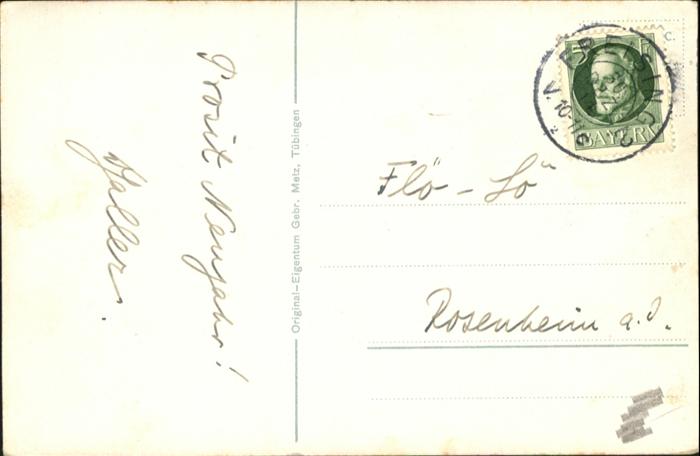 Prosit Neujahr!
Haller.
Original-Eigentum Gebr. Metz, Tübingen
C.
5
BAYERN
V. 10-11
Flö - Lö"
Rosenheim a. J.